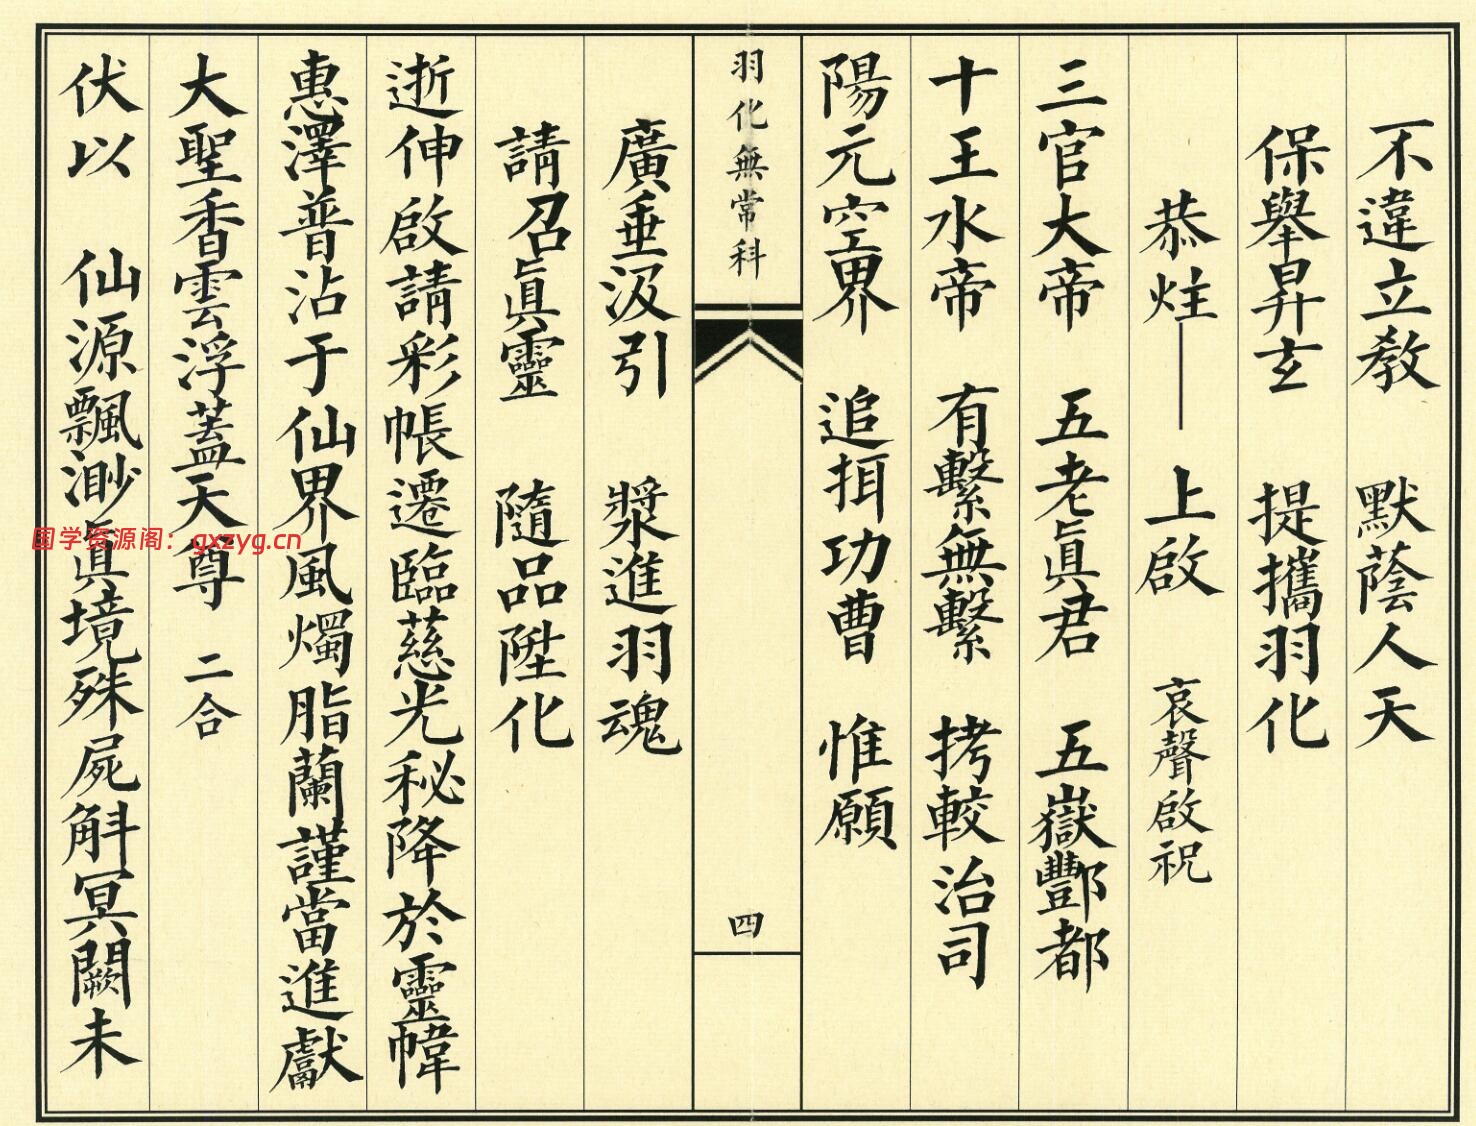 不違立教　默蔭人天
保舉昇玄　提攜羽化
恭炷——上啟　哀聲啟祝
三官大帝　五老眞君　五嶽酆都
十王水帝　有繫無繫　拷較治司
陽元空界　追抇功曹　惟願
羽化無常科　四
廣垂汲引　漿進羽魂
請召眞靈　隨品陞化
逝伸啟請彩帳遷臨慈光秘降於靈幃
惠澤普沾于仙界風燭脂蘭謹當進獻
大聖香雲浮蓋天尊　二合
伏以　仙源飄渺眞境殊屍斛冥闕未
国学资源阁：gxzyg.cn